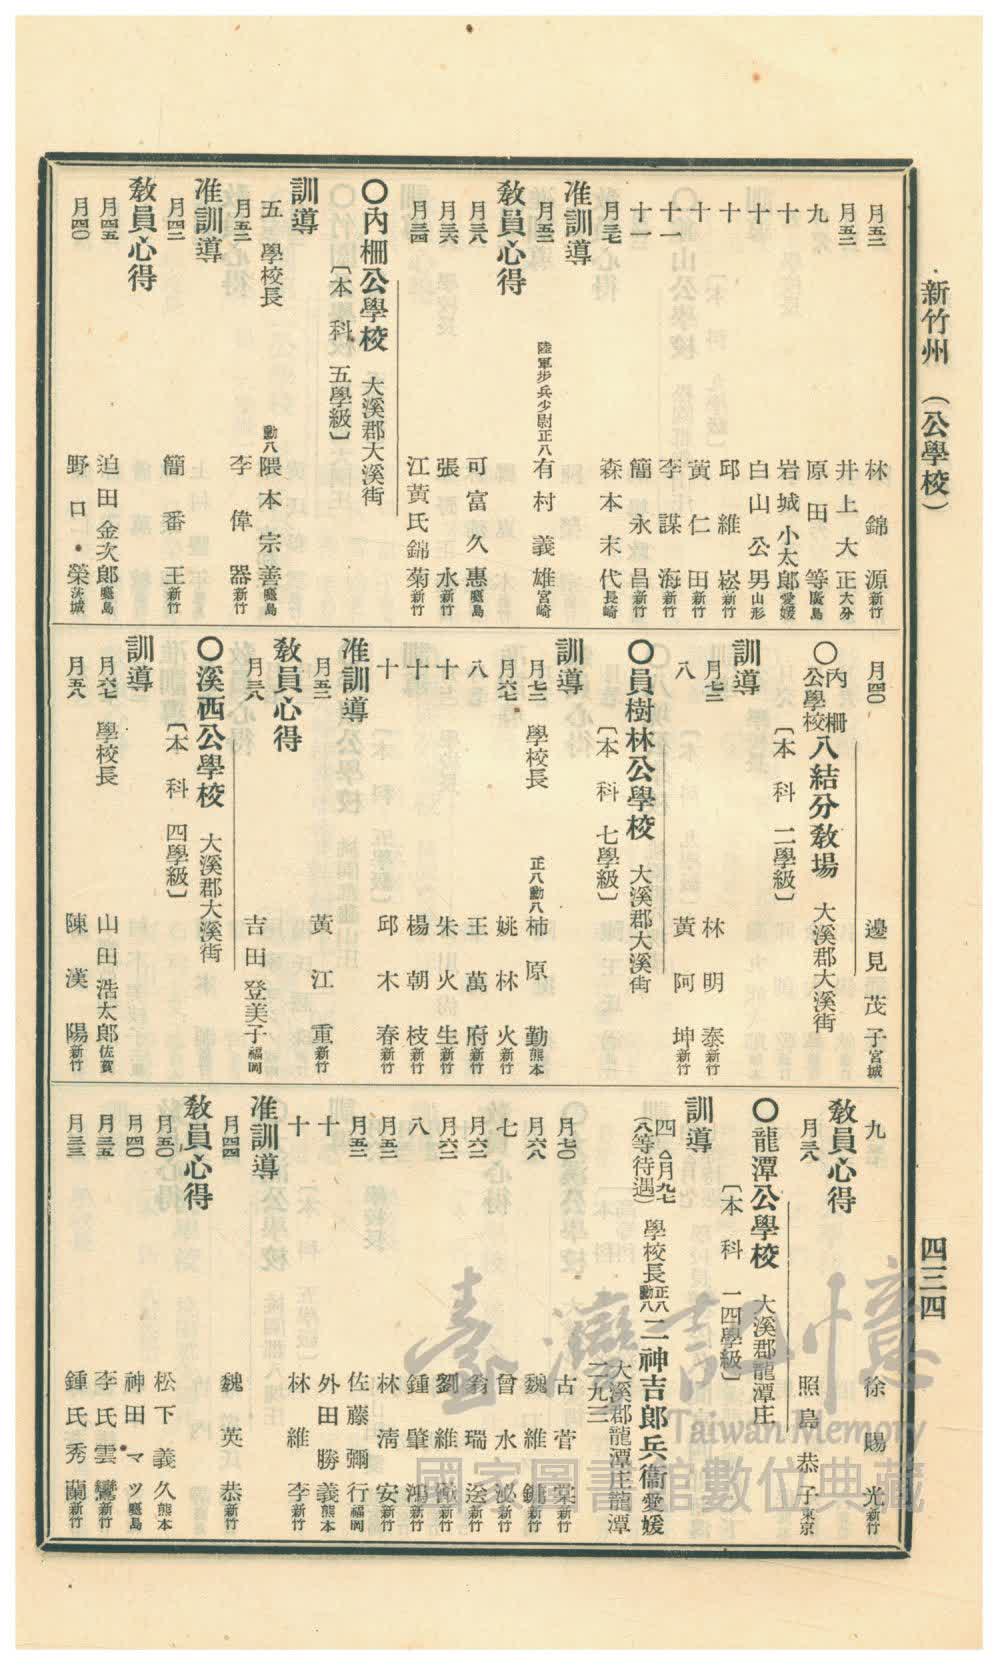 新竹州 （公學校）
四三四
月五二 林錦源 新竹
月五二 井上大正 大分
九 原田等 廣島
十 岩城小太郎 愛媛
十 白山公男 山形
十 邱維崧 新竹
十 黃仁田 新竹
十一 李謀海 新竹
十二 簡永昌 新竹
月三七 森本末代 長崎
准訓導
月五三 陸軍步兵少尉正八 有村義雄 宮崎
教員心得
月三六 可富久惠 鹿島
月三六 張水 新竹
月三四 江黃氏錦菊 新竹
〇內柵公學校 大溪郡大溪街
〔本科 五學級〕
訓導
五 學校長 勳八 隈本宗善 鹿島
月五二 李偉器 新竹
准訓導
月四二 簡番王 新竹
教員心得
月四五 迫田金次郎 鹿島
月四〇 野口榮 茨城
月四〇 邊見茂子 宮城
〇內柵公學校八結分教場 大溪郡大溪街
〔本科 二學級〕
訓導
月七二 林明泰 新竹
八 黃阿坤 新竹
〇員樹林公學校 大溪郡大溪街
〔本科 七學級〕
訓導
月七三 學校長 正八勳八 柿原勤 熊本
月六七 姚林火 新竹
八 王萬府 新竹
十 朱火生 新竹
十 楊朝枝 新竹
十 邱木春 新竹
准訓導
月五二 黃江重 新竹
教員心得
月三八 吉田登美子 福岡
〇溪西公學校 大溪郡大溪街
〔本科 四學級〕
訓導
月六七 學校長 山田浩太郎 佐賀
月五八 陳漢陽 新竹
九 徐賜光 新竹
教員心得
月三八 照島恭子 東京
〇龍潭公學校 大溪郡龍潭庄
〔本科 一四學級〕
訓導
四△月九七（八等待遇） 學校長 正八勳八 二神吉郎兵衞 愛媛
大溪郡龍潭庄龍潭二九三
月七〇 古菅棠 新竹
月六八 魏維鏞 新竹
七 曾水泌 新竹
月六二 翁瑞送 新竹
月六二 劉維 新竹
八 鍾肇鴻 新竹
月五二 林清安 新竹
月五二 佐藤彌行 福岡
十 外田勝義 熊本
十 林維李 新竹
准訓導
月四四 魏英恭 新竹
教員心得
月五〇 松下義久 熊本
月四〇 神田マツ 鹿島
月三五 李氏雲鸞 新竹
月三三 鍾氏秀蘭 新竹
臺灣記憶
Taiwan Memory
國家圖書館數位典藏